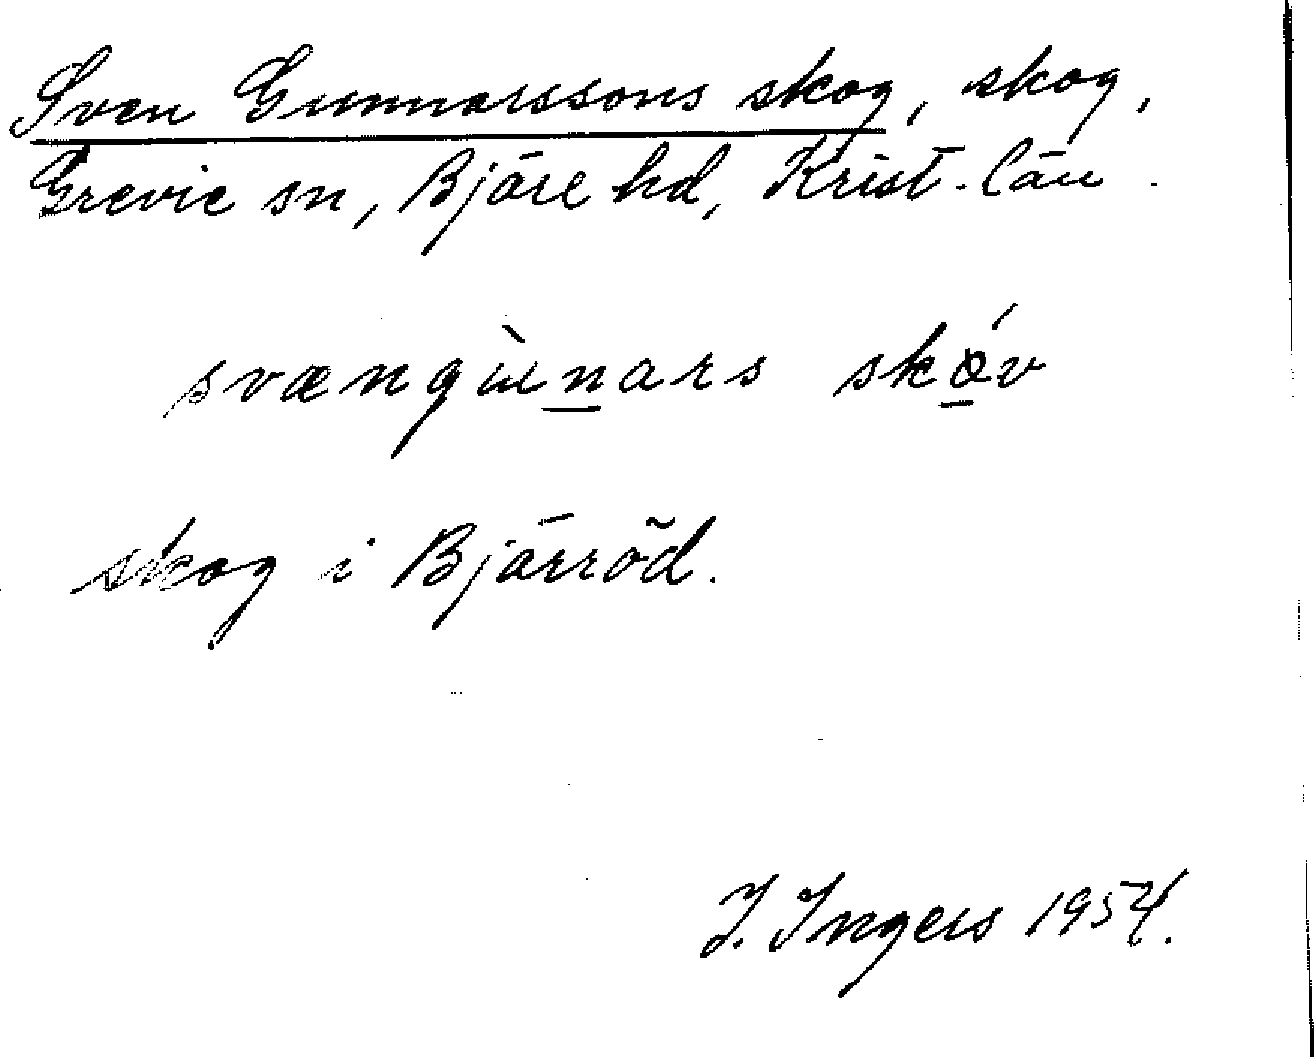 Sven Gunnarssons skog, skog,
Grevie sn, Bjäre hd, Krist. län.
svængùnars skóv
skog i Bjärröd.
I. Ingers 1954.